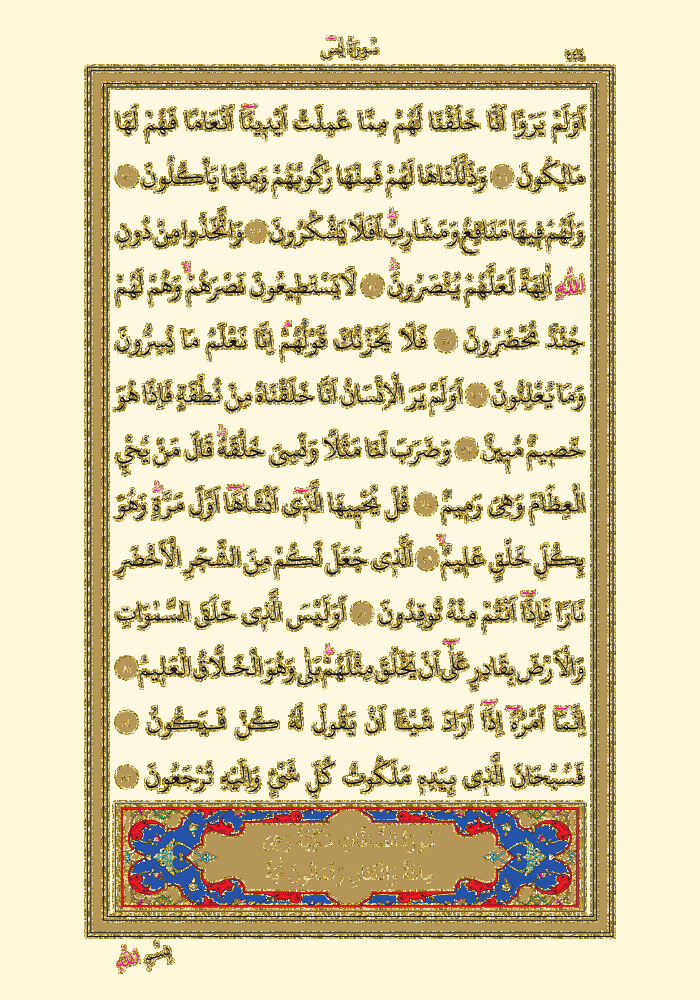 سُورَةُ يٰسٓ
اَوَلَمْ يَرَوْا اَنَّا خَلَقْنَا لَهُمْ مِمَّا عَمِلَتْ اَيْدِينَٓا اَنْعَامًا فَهُمْ لَهَا
مَالِكُونَ وَذَلَّلْنَاهَا لَهُمْ فَمِنْهَا رَكُوبُهُمْ وَمِنْهَا يَأْكُلُونَ
وَلَهُمْ فِيهَا مَنَافِعُ وَمَشَارِبُۜ اَفَلَا يَشْكُرُونَ وَاتَّخَذُوا مِنْ دُونِ
اللّٰهِ اٰلِهَةً لَعَلَّهُمْ يُنْصَرُونَۜ لَا يَسْتَطِيعُونَ نَصْرَهُمْۙ وَهُمْ لَهُمْ
جُنْدٌ مُحْضَرُونَ فَلَا يَحْزُنْكَ قَوْلُهُمْۢ اِنَّا نَعْلَمُ مَا يُسِرُّونَ
وَمَا يُعْلِنُونَ اَوَلَمْ يَرَ الْاِنْسَانُ اَنَّا خَلَقْنَاهُ مِنْ نُطْفَةٍ فَاِذَا هُوَ
خَصِيمٌ مُبِينٌ وَضَرَبَ لَنَا مَثَلًا وَنَسِيَ خَلْقَهُۜ قَالَ مَنْ يُحْيِ
الْعِظَامَ وَهِيَ رَمِيمٌ قُلْ يُحْيِيهَا الَّذِٓي اَنْشَاَهَٓا اَوَّلَ مَرَّةٍۜ وَهُوَ
بِكُلِّ خَلْقٍ عَلِيمٌۙ اَلَّذِي جَعَلَ لَكُمْ مِنَ الشَّجَرِ الْاَخْضَرِ
نَارًا فَاِذَٓا اَنْتُمْ مِنْهُ تُوقِدُونَ اَوَلَيْسَ الَّذِي خَلَقَ السَّمٰوَاتِ
وَالْاَرْضَ بِقَادِرٍ عَلٰٓى اَنْ يَخْلُقَ مِثْلَهُمْۜ بَلٰى وَهُوَ الْخَلَّاقُ الْعَلِيمُ
اِنَّمَٓا اَمْرُهُٓ اِذَٓا اَرَادَ شَيْـًٔا اَنْ يَقُولَ لَهُ كُنْ فَيَكُونُ
فَسُبْحَانَ الَّذِي بِيَدِهِ مَلَكُوتُ كُلِّ شَيْءٍ وَاِلَيْهِ تُرْجَعُونَ
بِسْمِ اللّٰهِ